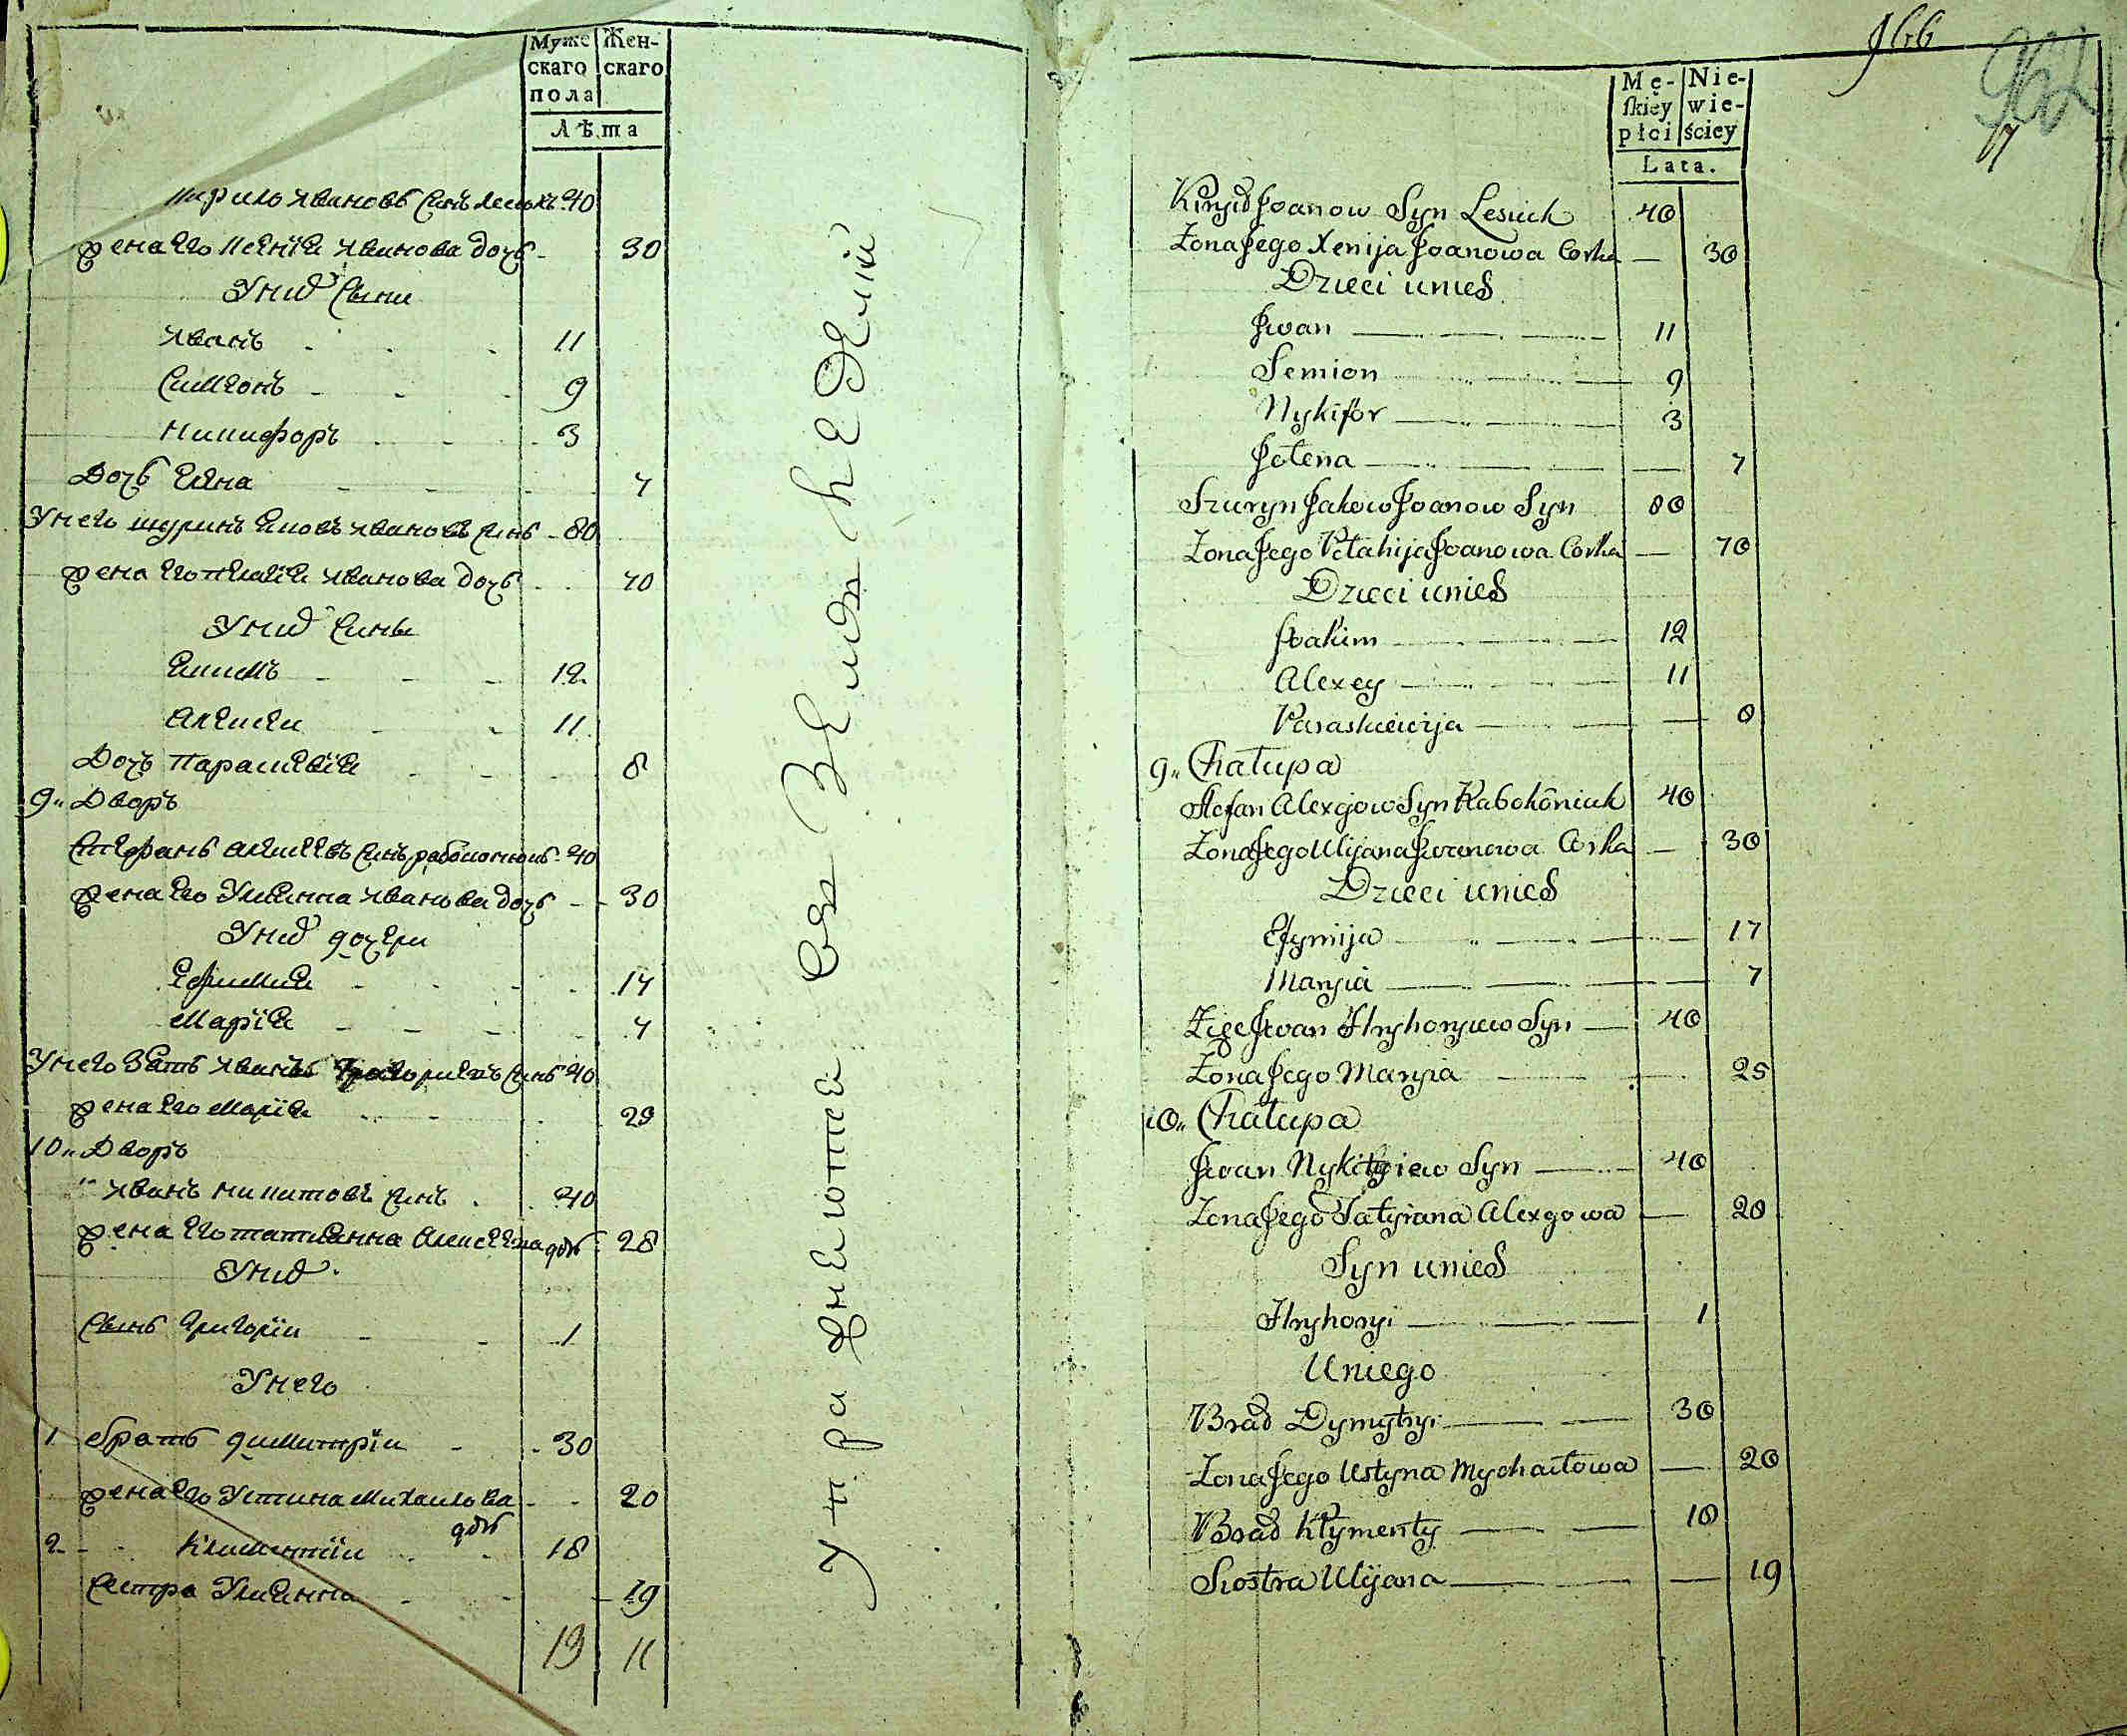 Муже Жен-
скаго скаго
пола
Лѣта
Кирило Ивановъ синъ Лесюкъ 40
жена его Ксенїя Иванова дочь - 30
У нид сыни
Иванъ - 11
Симеонъ - 9
Никифоръ - 3
Дочь Елена - 7
У него шуринъ Яковъ Ивановъ синъ - 80
жена его Пелагїя Иванова дочь - 70
У нид сины
Якимъ - 12
Алексеи - 11
Дочъ Параскевїя - 8
9" Дворъ
Стефанъ Алексеевъ синъ Рабоконюкъ 40
жена его Улиянна Иванова дочь - 30
У нид дочери
Ефимия - 17
Марїя - 7
У него зять Иванъ Григориевъ синъ 40
жена его Марїя - 25
10" Дворъ
Иванъ Никитовъ синъ 40
жена его Татиянна Алексеева дочь 28
У нид
Сынъ Григорїи - 1
У него
1 братъ Димитрїи - 30
жена его Устина Михаилова дочь - 20
2 - Климентїи - 18
Сестра Улиянна - 19
13 11
у т ра днеионте св Зем неделїи
966
962
Mę- Nie-
skiéy wie-
płci ściey
Lata.
Kiryło Joanow Syn Lesiuk 40
Żona Jego Xenija Joanowa Corka — 30
Dzieci u nied
Jwan — 11
Semion — 9
Nykifor — 3
Jołena — 7
Szuryn Jakow Joanow Syn 80
Żona Jego Pełahija Joanowa Corka — 70
Dzieci u nied
Joakim — 12
Alexey — 11
Paraskiewija — 8
9" Chałupa
Stefan Alexyow Syn Rabokoniuk 40
Żona Jego Ulijana Jwanowa Corka — 30
Dzieci u nied
Efymija — 17
Maryia — 7
Zięć Jwan Hryhoryiew Syn — 40
Żona Jego Maryia — 25
10" Chałupa
Jwan Nykityiew Syn — 40
Żona Jego Tatyiana Alexyowa — 28
Syn u nied
Hryhoryi — 1
U niego
Brad Dymytryi — 30
Żona Jego Ustyna Mychaiłowa — 20
Brad Kłymenty — 18
Siostra Ulijana — 19